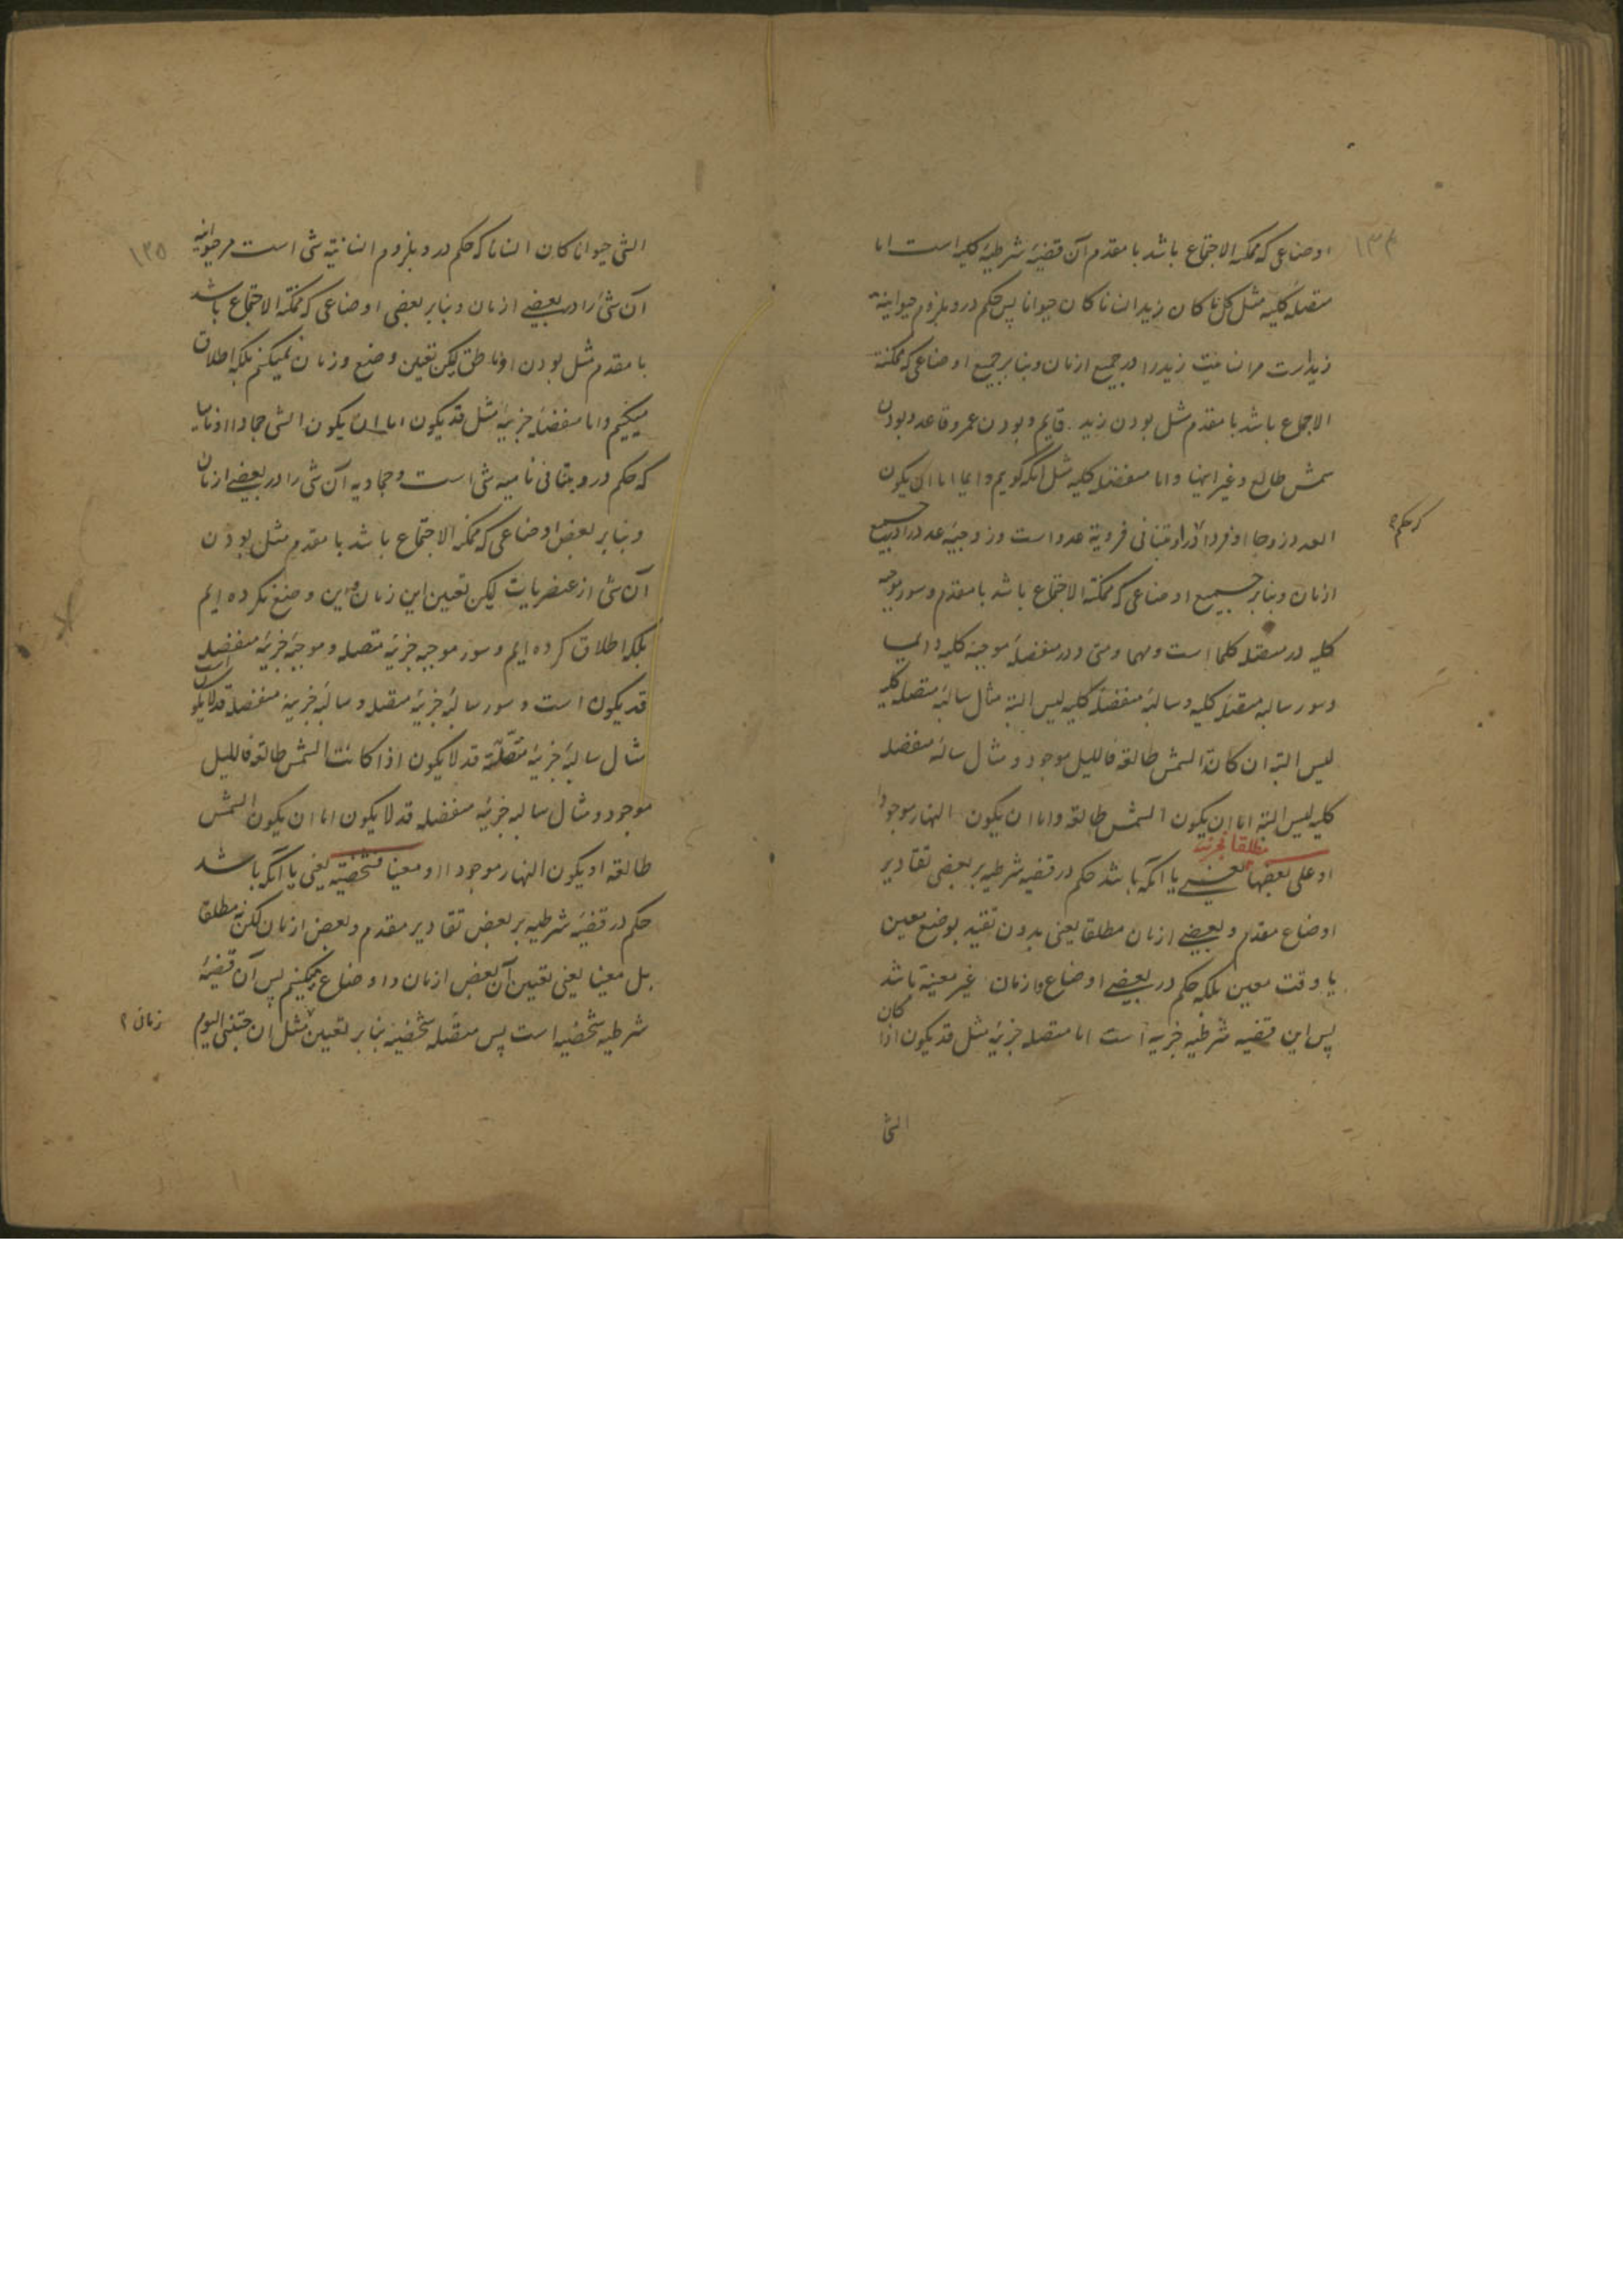 ۱۳۴
اوضاعی که ممکنة الاجتماع باشد با مقدم آن قضیهٔ شرطیهٔ کلیه است اما
متصلهٔ کلیه مثل کلما کان زید انسانا کان حیوانا پس حکم درو بلزوم حیوانیة
زید است مر انسانیت زید را در جمیع ازمان و بنابر جمیع اوضاعی که ممکنة
الاجماع باشد با مقدم مثل بودن زید قایم و بودن عمرو قاعد و بودن
شمس طالع و غیر اینها و اما منفصلهٔ کلیه مثل آنکه گویم دایما اما ان یکون
العدد زوجا او فردا در او تنافی فردیة عدد است و زوجیة عدد را در جمیع
که حکم
ازمان و بنابر جمیع اوضاعی که ممکنة الاجتماع باشد با مقدم و سور موجبه
کلیه در متصله کلما است و مهما و متی و در منفصلهٔ موجبهٔ کلیه دائما
و سور سالبه متصلهٔ کلیه و سالبهٔ منفصلهٔ کلیه لیس البتة مثال سالبهٔ متصله کلیه
لیس البتة ان کانت الشمس طالعة فاللیل موجود و مثال سالبهٔ منفصله
کلیه لیس البتة اما ان یکون الشمس طالعة و اما ان یکون النهار موجودا
او علی بعضها مطلقا فجزئیة یعنی یا آنکه باشد حکم در قضیهٔ شرطیه بر بعضی تقادیر
اوضاع مقدم و بعضی ازمان مطلقا یعنی بدون تقید بوضع معین
یا وقت معین بلکه حکم در بعضی اوضاع و ازمان غیر معینة باشد
پس این قضیه شرطیه جزییه است اما متصله جزییه مثل قد یکون اذا کان
الشی
۱۳۵
الشی حیوانا کان انسانا که حکم درو بلزوم انسانیة شی است مر حیوانیة
آن شی را در بعضی ازمان و بنابر بعضی اوضاعی که ممکنة الاجتماع باشد
با مقدم مثل بودن او ناطق لیکن تعین وضع و زمان نمیکنم بلکه اطلاق
میکنیم و اما منفصلهٔ جزییه مثل قد یکون اما ان یکون الشی جمادا او نامیا
که حکم درو بتنافی نامییه شی است و جمادیه آن شی را در بعضی ازمان
و بنابر بعض اوضاعی که ممکنة الاجتماع باشد با مقدم مثل بودن
آن شی از عنصریات لیکن تعین این زمان و این وضع نکرده ایم
بلکه اطلاق کرده ایم و سور موجبه جزییهٔ متصله و موجبهٔ جزییهٔ منفصله
قد یکون است و سور سالبهٔ جزییهٔ متصله و سالبهٔ جزییهٔ منفصله قد لا یکون است
مثال سالبهٔ جزییهٔ متصلة قد لا یکون اذا کانت الشمس طالعة فاللیل
موجود و مثال سالبه جزییهٔ منفصله قد لا یکون اما ان یکون الشمس
طالعة او یکون النهار موجودا او معینا فشخصیة یعنی یا آنکه باشد
حکم در قضیهٔ شرطیه بر بعض تقادیر مقدم و بعض ازمان لکن نه مطلقا
بل معینا یعنی تعیین آن بعض ازمان و اوضاع میکنیم پس آن قضیهٔ
شرطیه شخصیه است پس متصله شخصیه بنابر تعیین مثل ان جئتنی الیوم
زمان